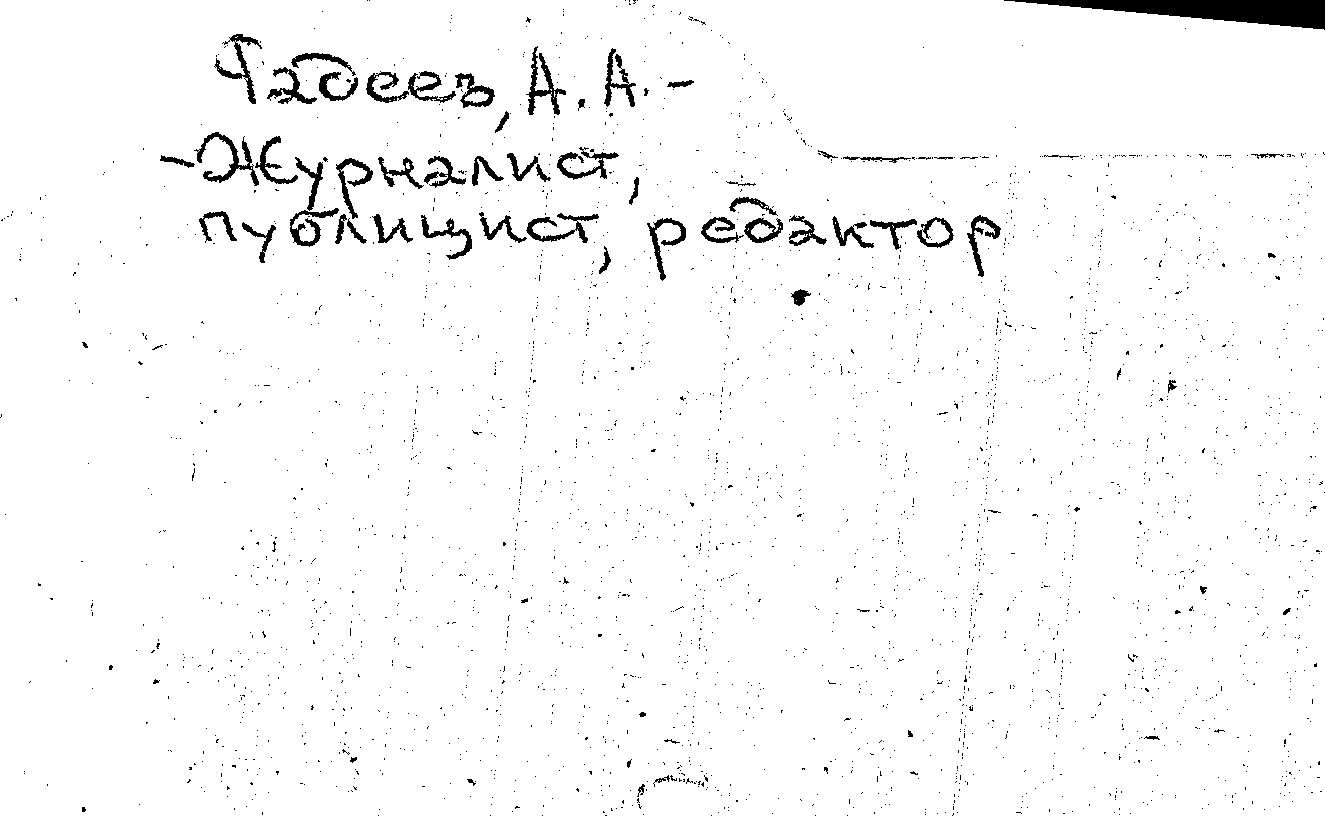 Фадеев, А. А. -
- Журналист,
публицист, редактор